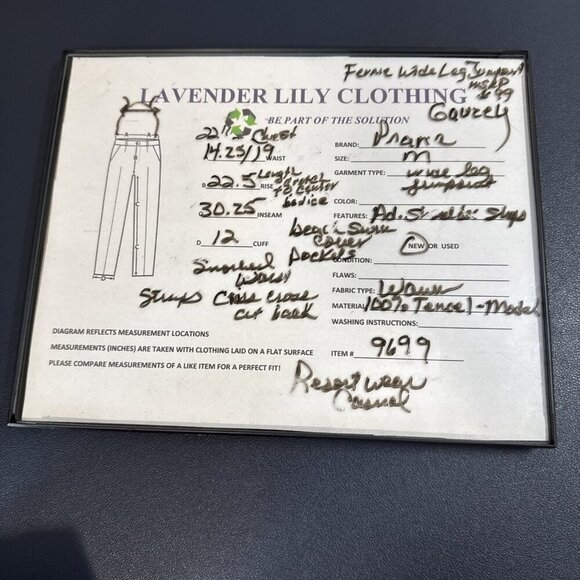 Fernie Wide Leg Jumpsuit
MSRP
LAVENDER LILY CLOTHING
Gauzey
BE PART OF THE SOLUTION
22" Chest
14.25/19 WAIST
B 22.5 RISE Length crotch to center bodice
30.25 INSEAM
D 12 CUFF
Beach Swim
cover
Pockets
Smocked
Waist
Straps Criss Cross
cut back
BRAND: Prana
SIZE: M
GARMENT TYPE: wide leg
jumpsuit
COLOR:
FEATURES: Ad. Shoulder Straps
NEW OR USED
CONDITION:
FLAWS:
FABRIC TYPE: Woven
MATERIAL 100% Tencel-Modal
WASHING INSTRUCTIONS:
ITEM # 9699
DIAGRAM REFLECTS MEASUREMENT LOCATIONS
MEASUREMENTS (INCHES) ARE TAKEN WITH CLOTHING LAID ON A FLAT SURFACE
PLEASE COMPARE MEASUREMENTS OF A LIKE ITEM FOR A PERFECT FIT!
Resort wear
Casual